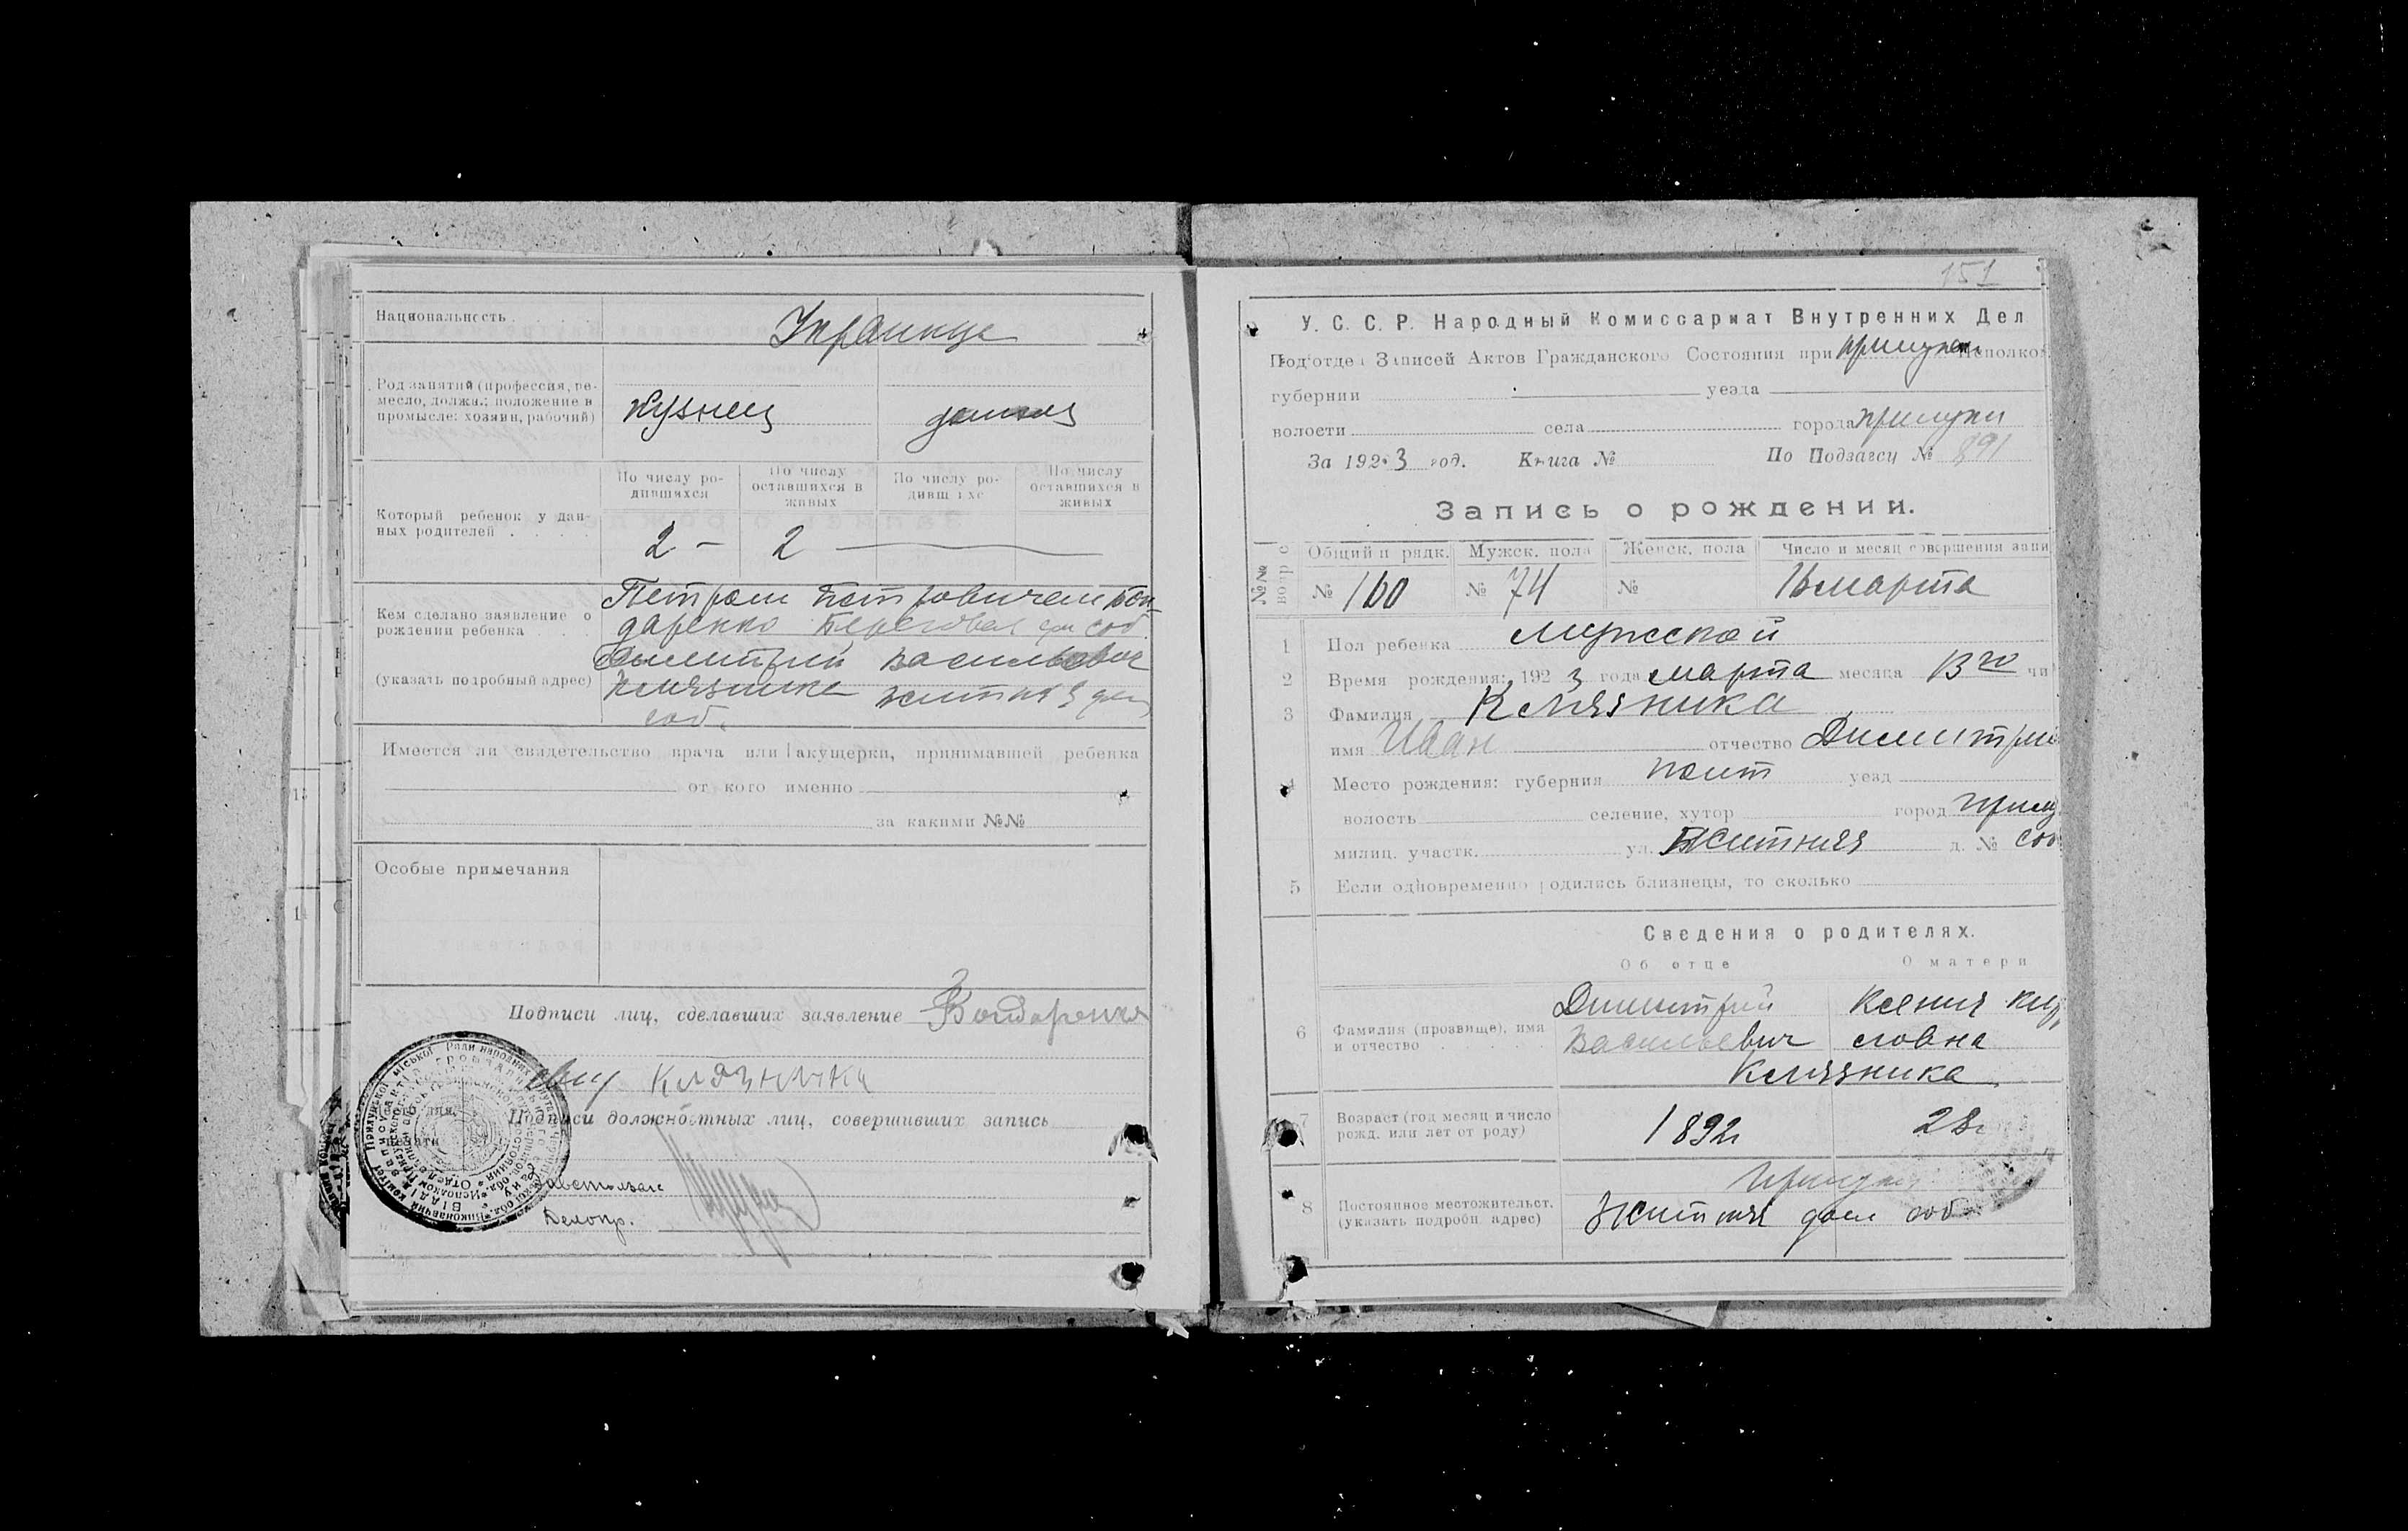 Национальность
Украинце
Род занятий (профессия, ре-
месло, должн.; положение в
промысле: хозяин, рабочий)
Кузнец
домаш
Который ребенок у дан-
ных родителей
По числу ро-
дившихся
По числу
оставшихся в
живых
По числу ро-
дивш хс
По числу
оставшихся в
живых
2 —
2
Кем сделано заявление о
рождении ребенка
(указать подробный адрес)
Петром Петровичем Бон-
даренко Береговая дом соб
Дымитрий Васильевич
Клязника Житняя дом
соб.
Имеется ли свидетельство врача или акушерки, принимавшей ребенка
от кого именно
за какими №№
Особые примечания
Подписи лиц, сделавших заявление Бондаренко
Клязника
Подписи должностных лиц, совершивших запись
Делопр.
151
У. С. С. Р. Народный Комиссариат Внутренних Дел
Под'отдел Записей Актов Гражданского Состояния при Прилуцком Исполком
губернии уезда
волости села города Прилуки
За 1923 год. Книга № По Подзагсу № 891
Запись о рождении.
№№ вопрс
Общий п рядк.
Мужск. пола
Женск. пола
Число и месяц совершения запи
№ 160
№ 74
№
16 марта
1 Пол ребенка мужской
2 Время рождения: 1923 года марта месяца 13го чи
3 Фамилия Клязника
имя Иван отчество Димитри
4 Место рождения: губерния Полт уезд
волость селение, хутор город Прилу
милиц. участк. ул. Житняя д. № соб
5 Если одновременно родились близнецы, то сколько
Сведения о родителях.
Об отце
О матери
6 Фамилия (прозвище), имя
и отчество
Димитрий
Васильевич
Ксения Кир
ловна
Клязника
7 Возраст (год месяц и число
рожд. или лет от роду)
1892г
28г
8 Постоянное местожительст.
(указать подробн. адрес)
Прилуки
Житняя дом соб